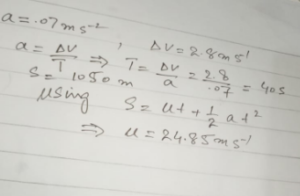 a = .07 ms⁻² , ΔV = 2.8 ms⁻¹
a = ΔV/T ⇒ T = ΔV/a = 2.8/.07 = 40s
S = 1050 m
using S = ut + 1/2 at²
⇒ u = 24.85 ms⁻¹